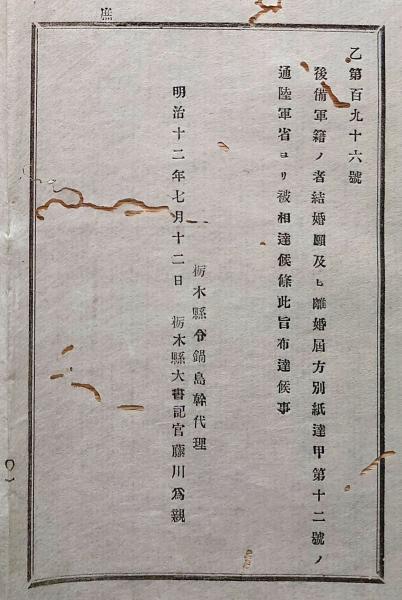 乙第百九十六號
後備軍籍ノ者結婚願及ヒ離婚屆方別紙達甲第十二號ノ
通陸軍省ヨリ被相達候條此旨布達候事
栃木縣令鍋島幹代理
明治十二年七月十二日　栃木縣大書記官藤川爲親